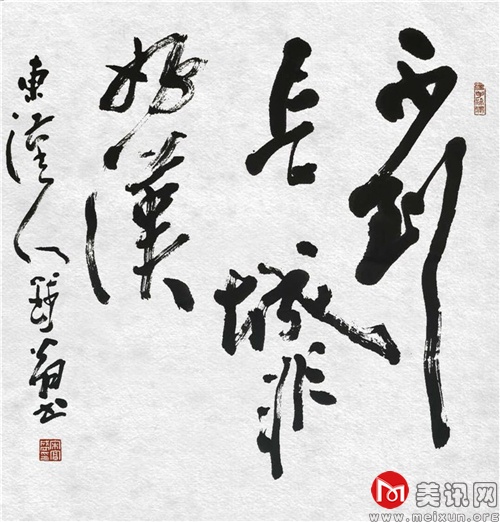 不到
长城非
好漢
東漢人翁书
美讯网
www.meixun.org